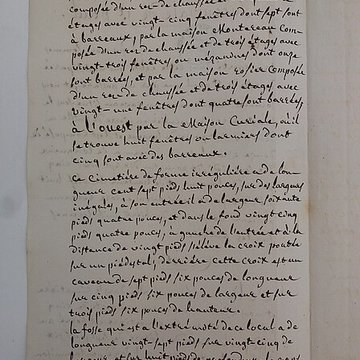 composée d'un rez-de-chaussée et
étages avec vingt-cinq fenêtres dont sept sont
à barreaux, par la maison Montereau Com-
posée d'un rez-de-chaussée et de trois étages avec
vingt-trois fenêtres ou mézanines dont onze
sont barrées, et par la maison Rosier Composée
d'un rez-de-chaussée et de trois étages avec
vingt-une fenêtres dont quatre sont barrées,
à l'ouest par la Maison Curiale, où il
se trouve huit fenêtres ou larmiers dont
cinq sont avec des barreaux.
Ce Cimetière de forme irrégulière a de lon-
gueur cent sept pieds huit pouces, sur des largeurs
inégales, à son entrée il a de largeur soixante
pieds quatre pouces, et dans le fond vingt cinq
pieds quatre pouces, à gauche de l'entrée et à la
distance de vingt pieds s'élève la croix portée
sur un piédestal, derrière cette croix est un
caveau de sept pieds six pouces de longueur
sur cinq pieds six pouces de largeur et sur
trois pieds six pouces de hauteur.
La fosse qui est à l'extrémité de ce local a de
longueur vingt-sept pieds sur vingt cinq de
largeur et sur huit pieds de profondeur